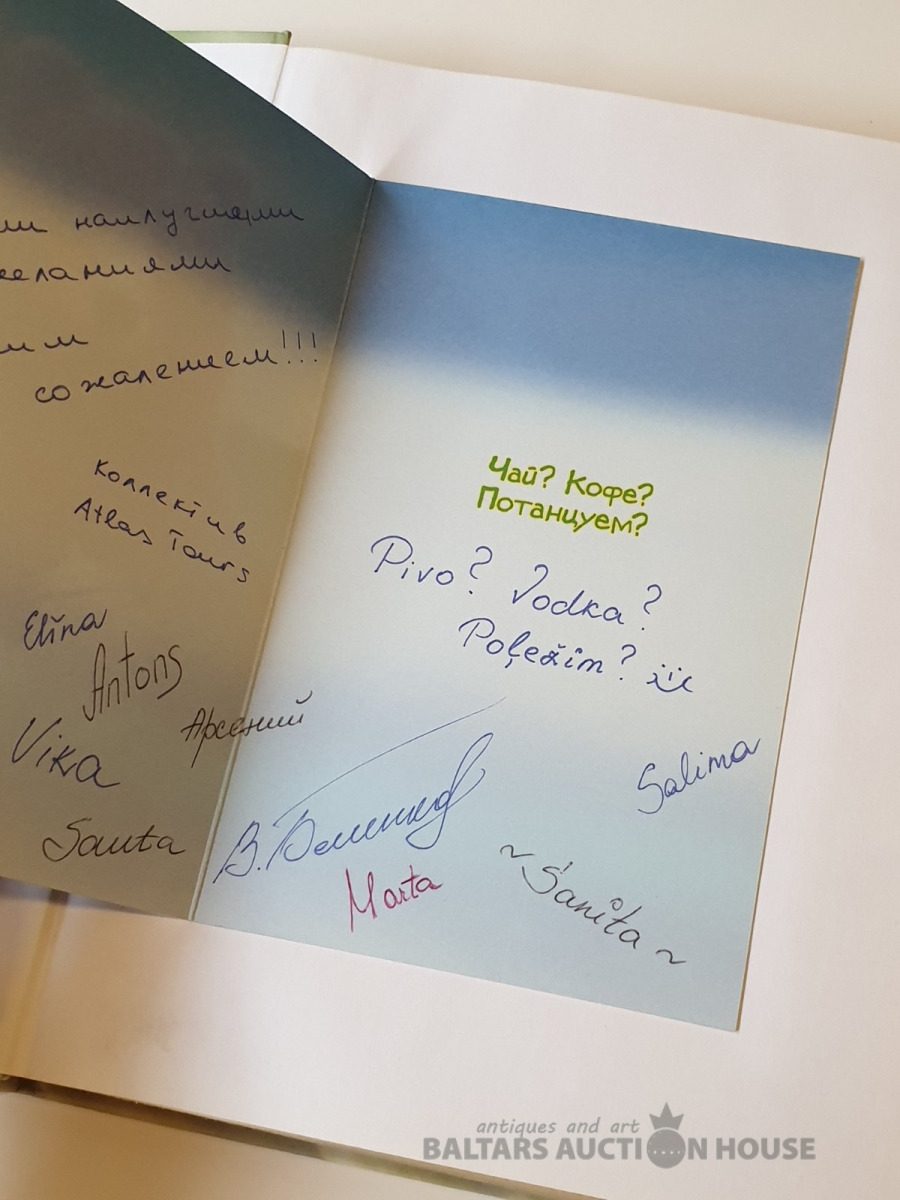 наилучшими
сожалением!!!
Коллектив
Atlas Tours
Elīna
Antons
Арсений
Vika
Santa
Чай? Кофе?
Потанцуем?
Pivo? Vodka?
Poļežim?
Salima
В.
Marta
~ Sanita ~
antiques and art
BALTARS AUCTION HOUSE